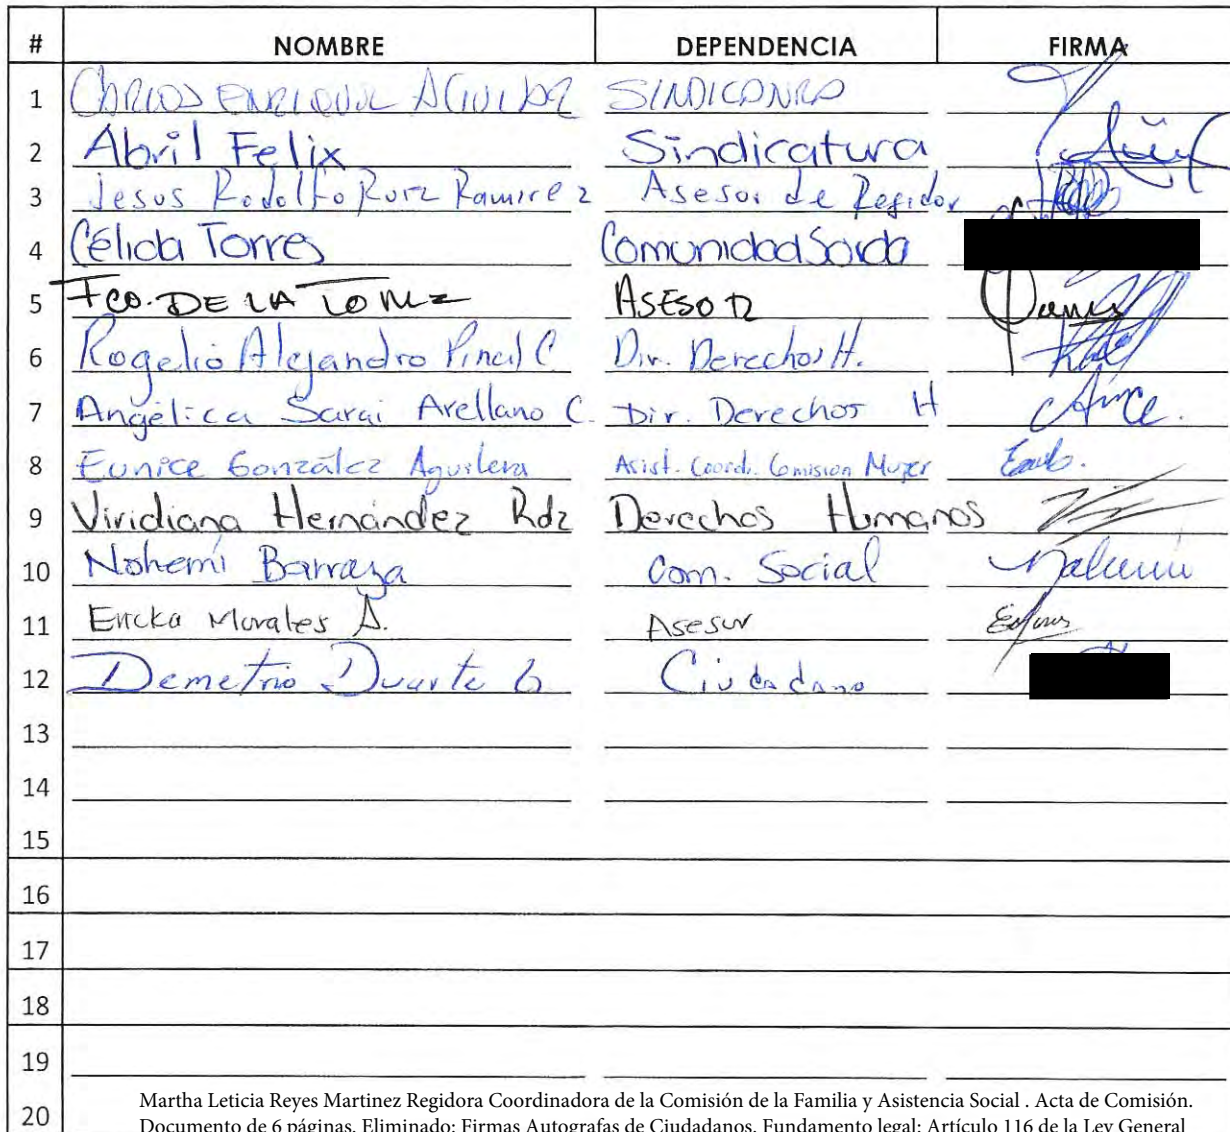 # NOMBRE DEPENDENCIA FIRMA
1 CARLOS ENRIQUE AGUILAR SINDICATURA
2 Abril Felix Sindicatura
3 Jesus Rodolfo Ruiz Ramirez Asesor de Regidor
4 Célida Torres Comunidad Sorda
5 Fco. DE LA TORRE ASESOR
6 Rogelio Alejandro Pineda C Dir. Derechos H.
7 Angélica Sarai Arellano C. Dir. Derechos H
8 Eunice González Aguilera Asist. Coord. Comision Mujer
9 Viridiana Hernández Rdz Derechos Humanos
10 Nohemí Barraza Com. Social
11 Ericka Morales A. Asesor
12 Demetrio Duarte G Ciudadano
13
14
15
16
17
18
19
20
Martha Leticia Reyes Martinez Regidora Coordinadora de la Comisión de la Familia y Asistencia Social . Acta de Comisión.
Documento de 6 páginas. Eliminado: Firmas Autografas de Ciudadanos. Fundamento legal: Artículo 116 de la Ley General